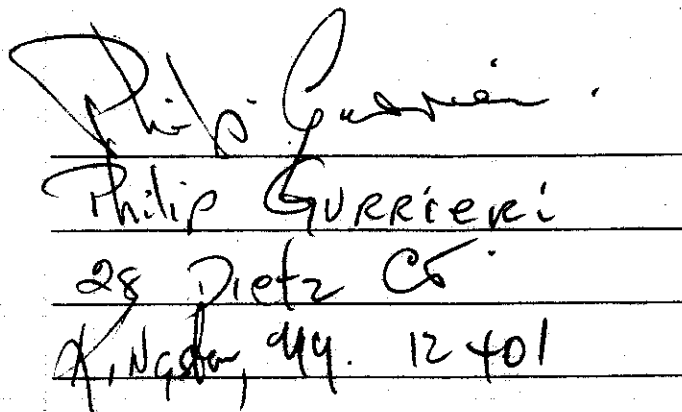 Philip Gurrieri
Philip GURRieRi
28 Dietz Ct.
Kingston, NY. 12401